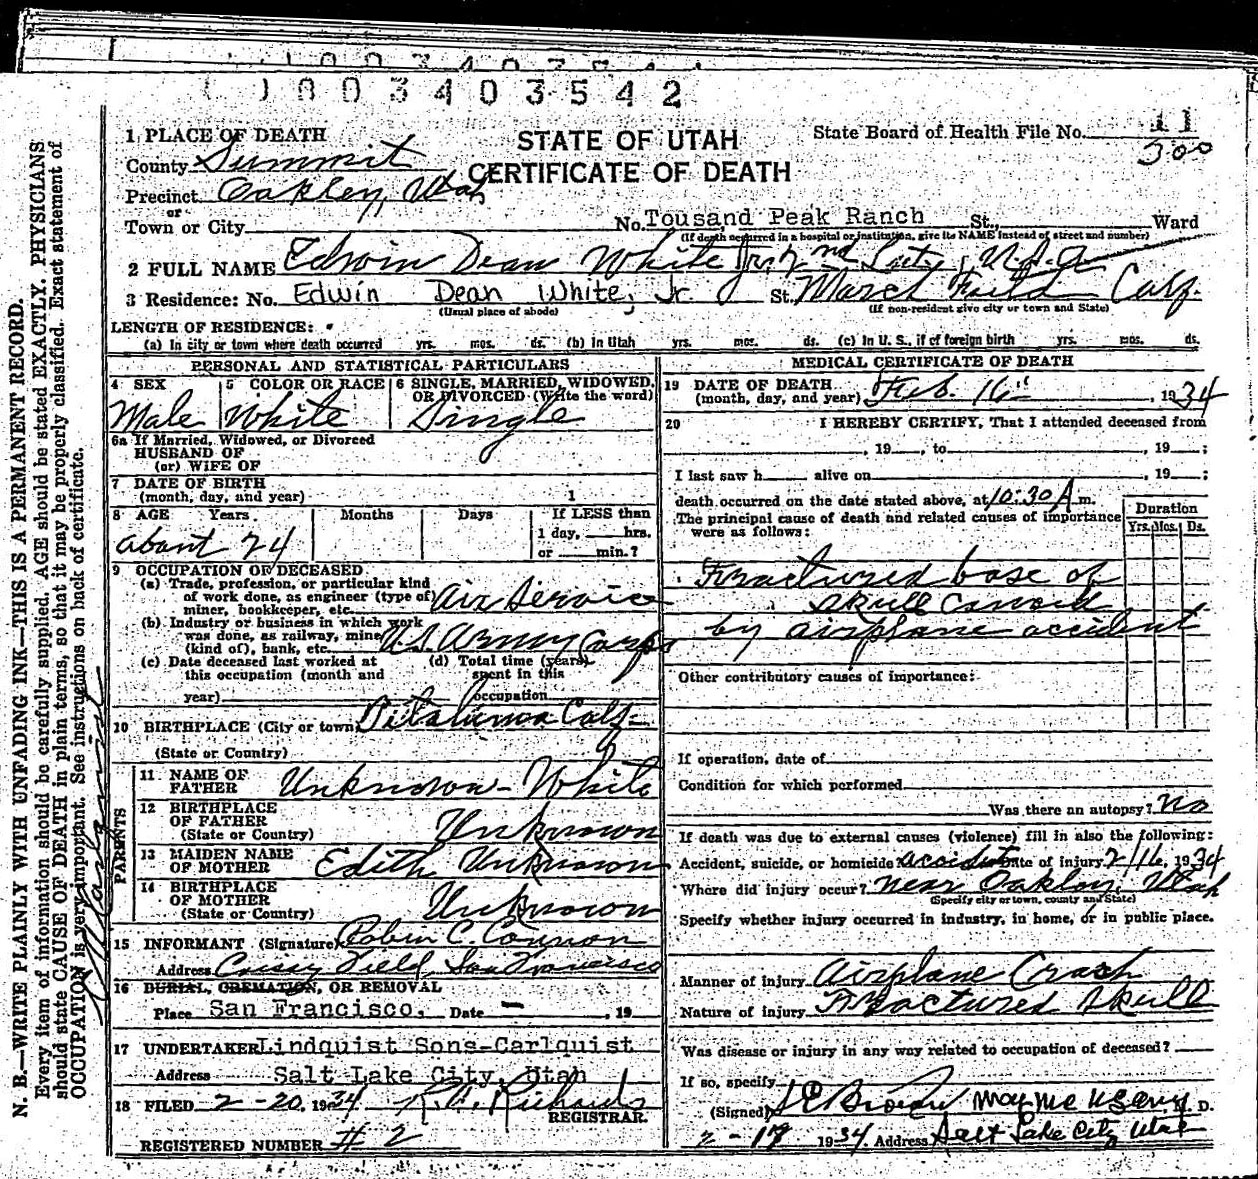 003403542
1 PLACE OF DEATH
STATE OF UTAH
CERTIFICATE OF DEATH
State Board of Health File No. 11
300
County Summit
Precinct Oakley, Utah
or
Town or City
No. Tousand Peak Ranch St., Ward
(If death occurred in a hospital or institution, give its NAME instead of street and number)
2 FULL NAME Edwin Dean White Jr. 2nd Lieut, U.S.A
3 Residence: No. Edwin Dean White, Jr. St. March Field Calf.
(Usual place of abode)
(If non-resident give city or town and State)
LENGTH OF RESIDENCE:
(a) In city or town where death occurred yrs. mos. ds. (b) in Utah yrs. mos. ds. (c) In U. S., if of foreign birth yrs. mos. ds.
PERSONAL AND STATISTICAL PARTICULARS
4 SEX
Male
5 COLOR OR RACE
White
6 SINGLE, MARRIED, WIDOWED, OR DIVORCED (Write the word)
Single
6a If Married, Widowed, or Divorced
HUSBAND OF
(or) WIFE OF
7 DATE OF BIRTH
(month, day, and year) 1
8 AGE Years Months Days If LESS than
1 day, hrs.
or min.?
about 24
9 OCCUPATION OF DECEASED
(a) Trade, profession, or particular kind
of work done, as engineer (type of)
miner, bookkeeper, etc. Air Service
(b) Industry or business in which work
was done, as railway, mine
(kind of), bank, etc. U.S. Army Corps
(c) Date deceased last worked at
this occupation (month and
year)
(d) Total time (years)
spent in this
occupation
10 BIRTHPLACE (City or town) Pitaluma Calf-
(State or Country)
PARENTS
11 NAME OF
FATHER Unknown- White
12 BIRTHPLACE
OF FATHER
(State or Country) Unknown
13 MAIDEN NAME
OF MOTHER Edith Unknown
14 BIRTHPLACE
OF MOTHER
(State or Country) Unknown
15 INFORMANT (Signature) Robin C. Connon
Address Crissy Field, San Francisco
16 BURIAL, CREMATION, OR REMOVAL
Place San Francisco. Date - , 19
17 UNDERTAKER Lindquist Sons-Carlquist
Address Salt Lake City, Utah
18 FILED 2-20, 1934 Richards
REGISTRAR
REGISTERED NUMBER # 2
MEDICAL CERTIFICATE OF DEATH
19 DATE OF DEATH
(month, day, and year) Feb. 16" , 1934
20 I HEREBY CERTIFY, That I attended deceased from
, 19 , to , 19 ;
I last saw h alive on , 19 ;
death occurred on the date stated above, at 10:30 A m.
The principal cause of death and related causes of importance
were as follows:
Duration
Yrs. Mos. Ds.
Fractured base of
skull caused
by airplane accident
Other contributory causes of importance:
If operation, date of
Condition for which performed
Was there an autopsy? no
If death was due to external causes (violence) fill in also the following:
Accident, suicide, or homicide? accident Date of injury 2/16, 1934
Where did injury occur? near Oakley, Utah
(Specify city or town, county and State)
Specify whether injury occurred in industry, in home, or in public place.
Manner of injury Airplane Crash
Nature of injury Fractured Skull
Was disease or injury in any way related to occupation of deceased?
If so, specify
(Signed) M. D.
2-17 1934 Address Salt Lake City Utah
N. B.—WRITE PLAINLY WITH UNFADING INK—THIS IS A PERMANENT RECORD.
Every item of information should be carefully supplied. AGE should be stated EXACTLY. PHYSICIANS
should state CAUSE OF DEATH in plain terms, so that it may be properly classified. Exact statement of
OCCUPATION is very important. See instructions on back of certificate.